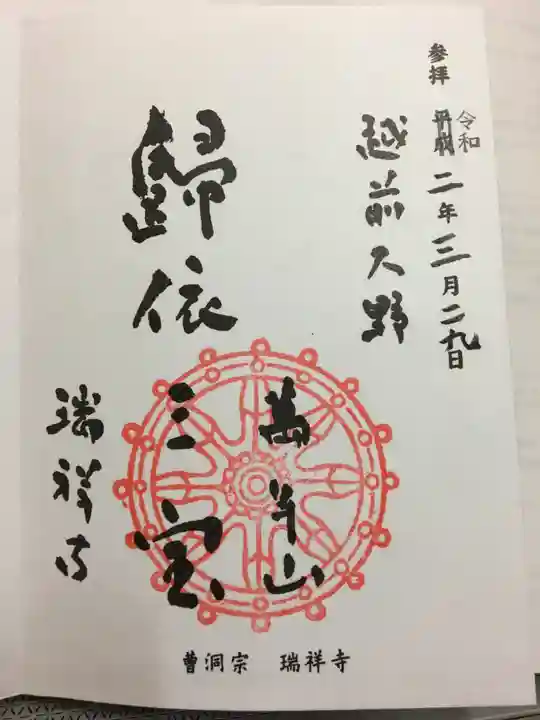 参拝 平成 令和 二年三月二九日
越前大野
萬年山
歸依
三宝
瑞祥寺
曹洞宗 瑞祥寺